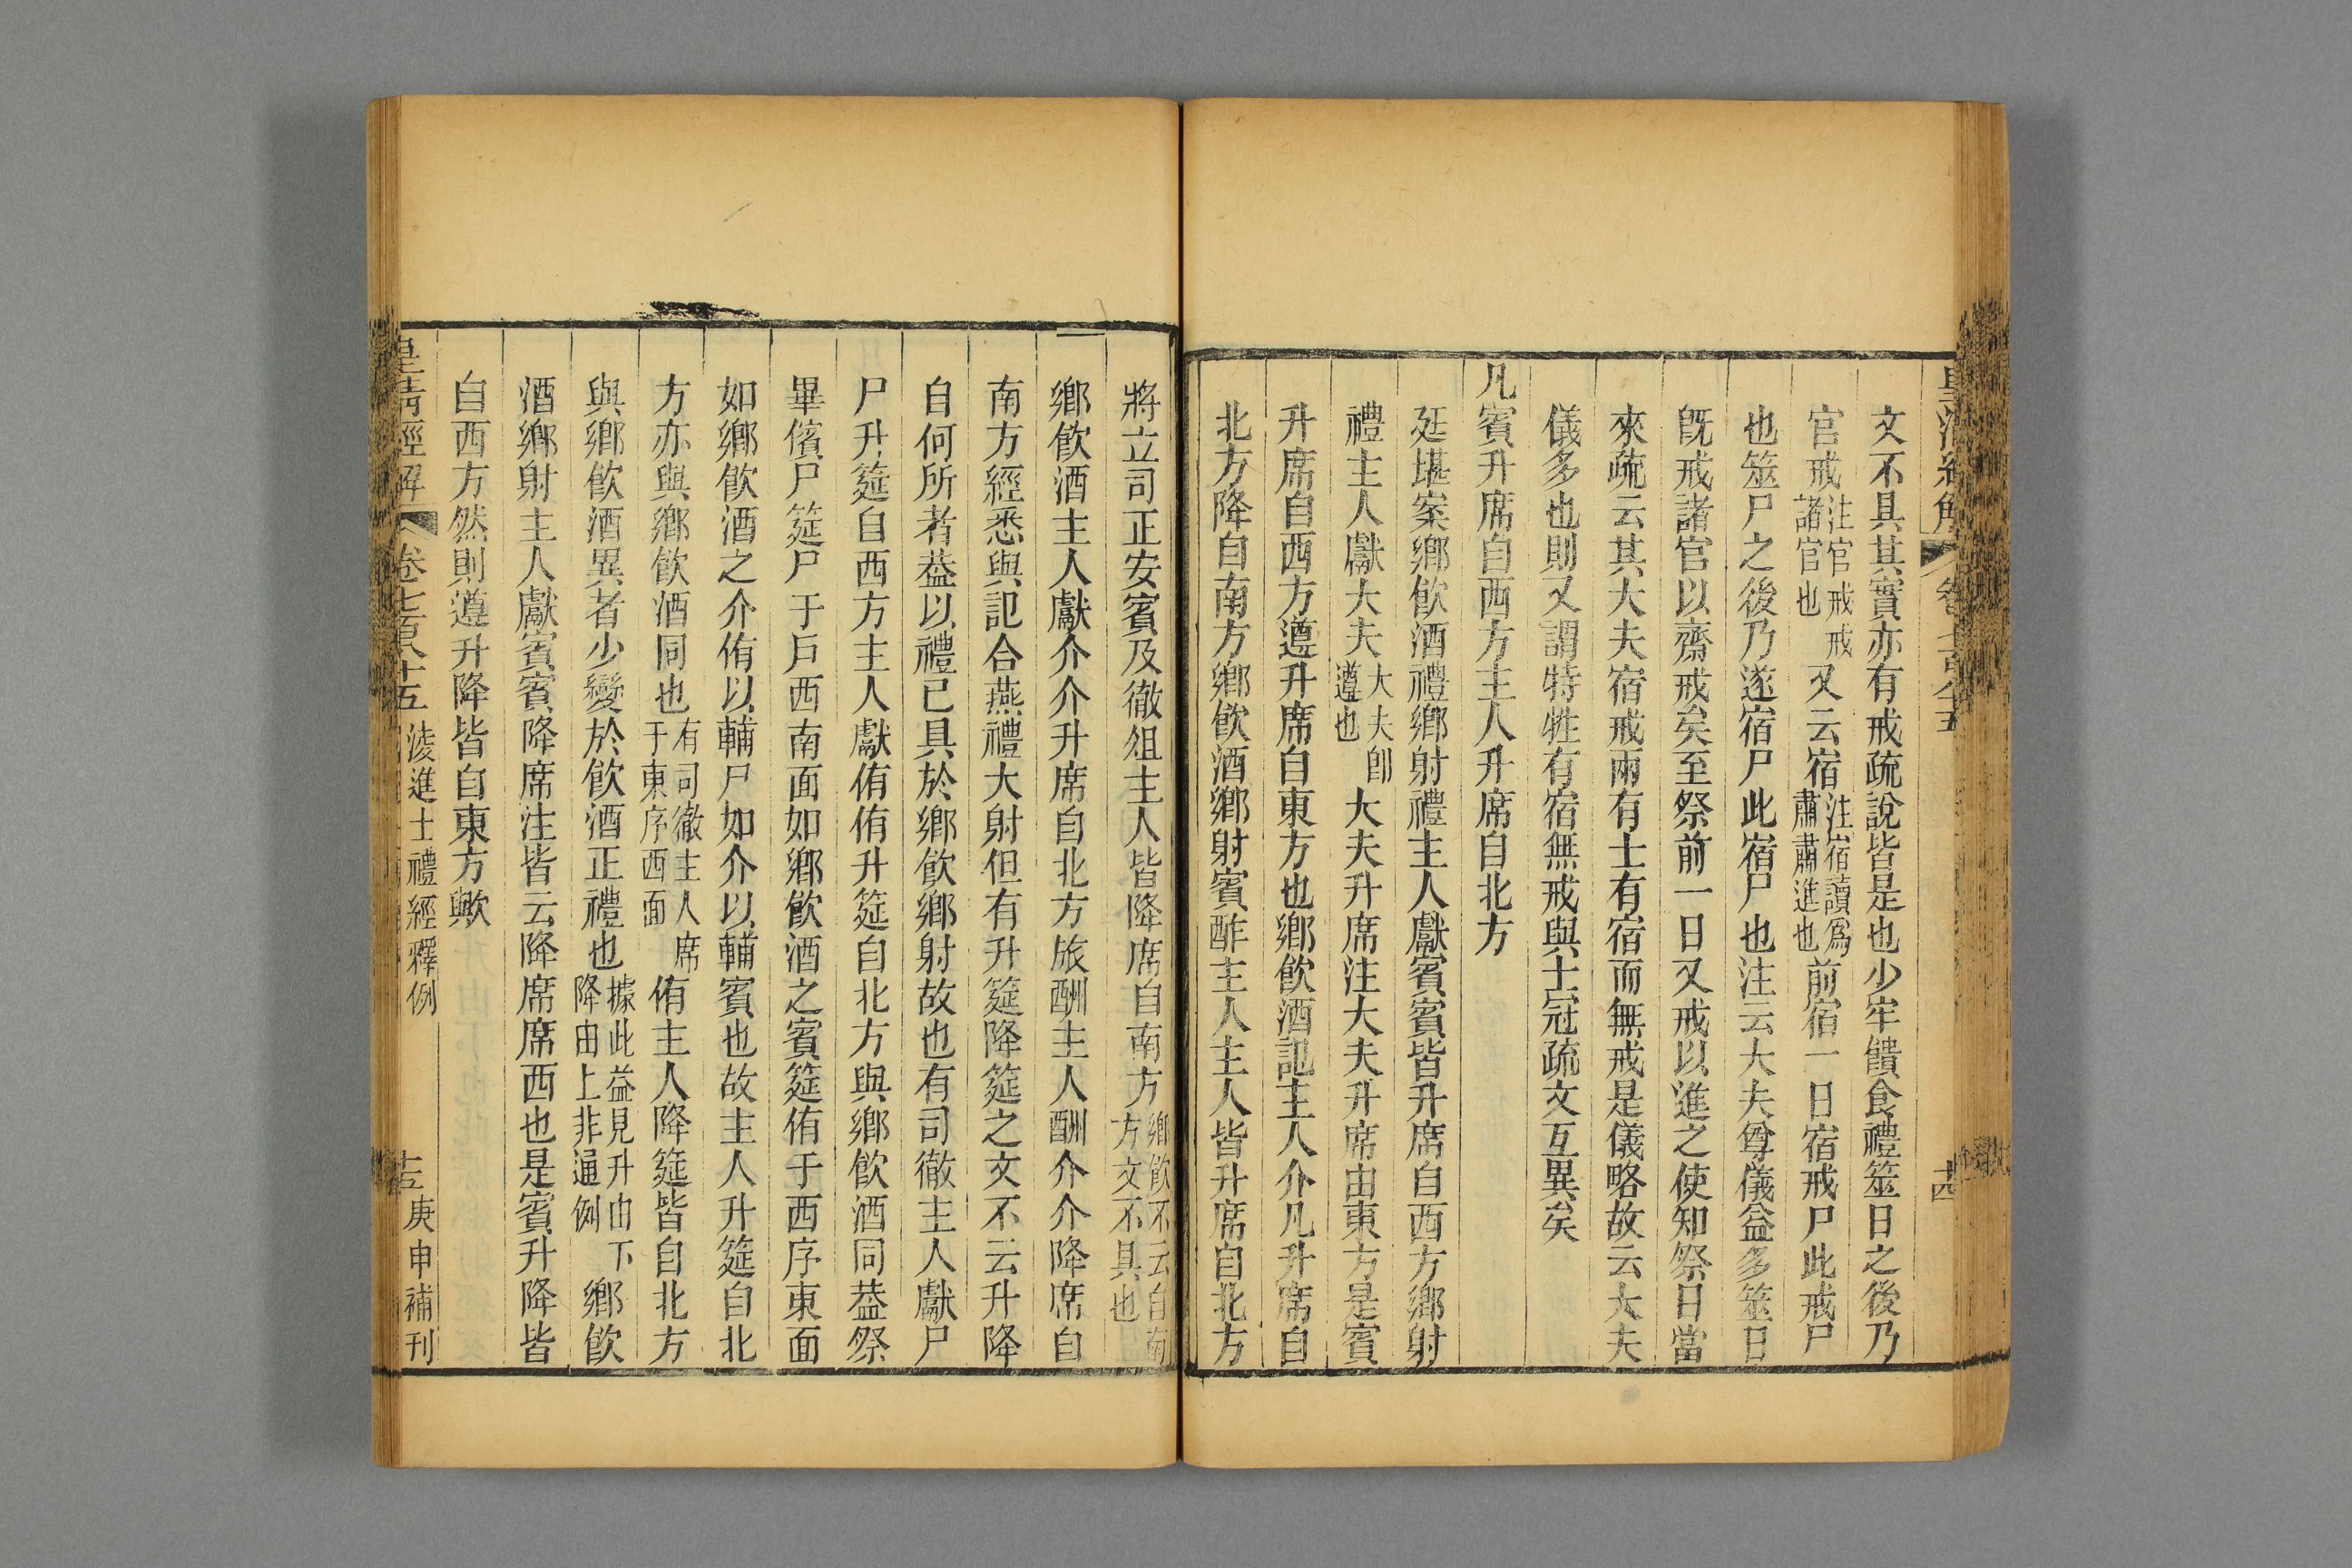 皇清經解 卷七百八十五 十四
文不具其實亦有戒疏說皆是也少牢饋食禮筮日之後乃
官戒注官戒戒諸官也又云宿注宿讀爲肅肅進也前宿一日宿戒尸此戒尸
也筮尸之後乃遂宿尸此宿尸也注云大夫尊儀益多筮日
旣戒諸官以齋戒矣至祭前一日又戒以進之使知祭日當
來疏云其大夫宿戒兩有士有宿而無戒是儀略故云大夫
儀多也則又謂特牲有宿無戒與士冠疏文互異矣
凡賓升席自西方主人升席自北方
廷堪案鄉飮酒禮鄉射禮主人獻賓賓皆升席自西方鄉射
禮主人獻大夫大夫卽遵也大夫升席注大夫升席由東方是賓
升席自西方遵升席自東方也鄉飮酒記主人介凡升席自
北方降自南方鄉飮酒鄉射賓酢主人主人皆升席自北方
將立司正安賓及徹俎主人皆降席自南方鄉飮不云自南方文不具也
鄉飮酒主人獻介介升席自北方旅酬主人酬介介降席自
南方經悉與記合燕禮大射但有升筵降筵之文不云升降
自何所者葢以禮已具於鄉飮鄉射故也有司徹主人獻尸
尸升筵自西方主人獻侑侑升筵自北方與鄉飮酒同葢祭
畢儐尸筵尸于戶西南面如鄉飮酒之賓筵侑于西序東面
如鄉飮酒之介侑以輔尸如介以輔賓也故主人升筵自北
方亦與鄉飮酒同也有司徹主人席于東序西面侑主人降筵皆自北方
與鄉飮酒異者少變於飮酒正禮也據此益見升由下降由上非通例鄉飮
酒鄉射主人獻賓賓降席注皆云降席席西也是賓升降皆
自西方然則遵升降皆自東方歟
皇清經解 卷七百八十五 淩進士禮經釋例 十五 庚申補刊